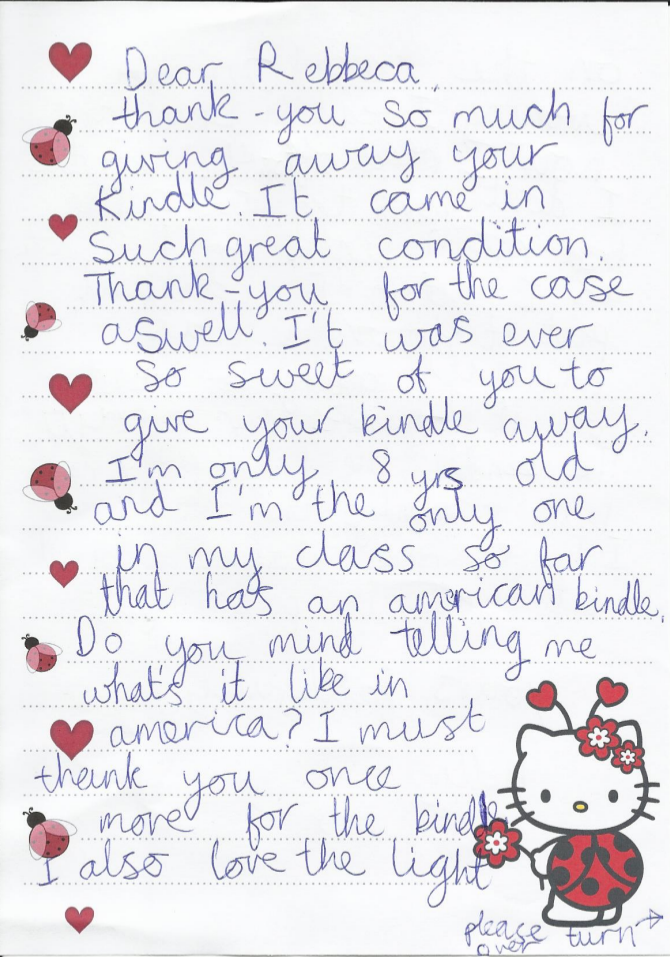 Dear Rebbeca,
thank-you so much for
giving away your
Kindle. It came in
Such great condition.
Thank-you for the case
aswell. I't was ever
so sweet of you to
give your kindle away.
I'm only 8 yrs old
and I'm the only one
in my class so far
that has an american kindle.
Do you mind telling me
what's it like in
america? I must
thank you once
more for the kindle
I also love the light
please turn →
over